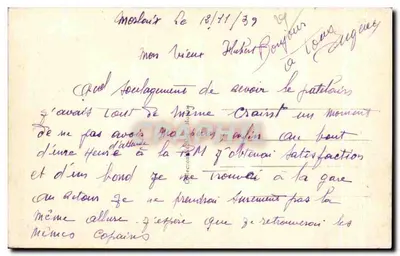 Morlaix le 13/11/39
Mon vieux Hubert Bonjour
à tous
Quel soulagement de avoir le
j'avais tout de même craint un moment
de ne pas avoir enfin au bout
d'une heure d'attente à la j'obtenai satisfaction
et d'un bond je me trouvai à la gare
au retour je ne prendrai surement pas la
même allure. j'espère que je retrouverai les
mêmes copains